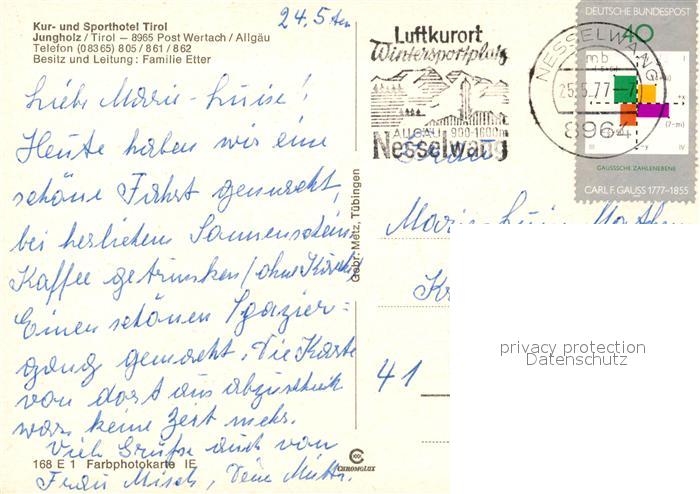 Kur- und Sporthotel Tirol
Jungholz / Tirol — 8965 Post Wertach / Allgäu
Telefon (08365) 805 / 861 / 862
Besitz und Leitung: Familie Etter
24.5
Liebe Marie-Luise!
Heute haben wir eine
schöne Fahrt gemacht,
bei herlichem Sonnenschein
Kaffee getrunken (ohne
Einen schönen Spazier=
gang gemacht. Die Karte
von dort aus abzuschick
war keine Zeit mehr.
Viele Grüße auch von
Frau Misch, Deine Mutti.
168 E 1 Farbphotokarte IE
CHROMOLUX
Gebr. Metz, Tübingen
Luftkurort
Wintersportplatz
ALLGÄU 900-1600m
Nesselwang
NESSELWANG
25.5.77-7
8964
DEUTSCHE BUNDESPOST
40
GAUSSSCHE ZAHLENEBENE
CARL F. GAUSS 1777-1855
41
privacy protection
Datenschutz